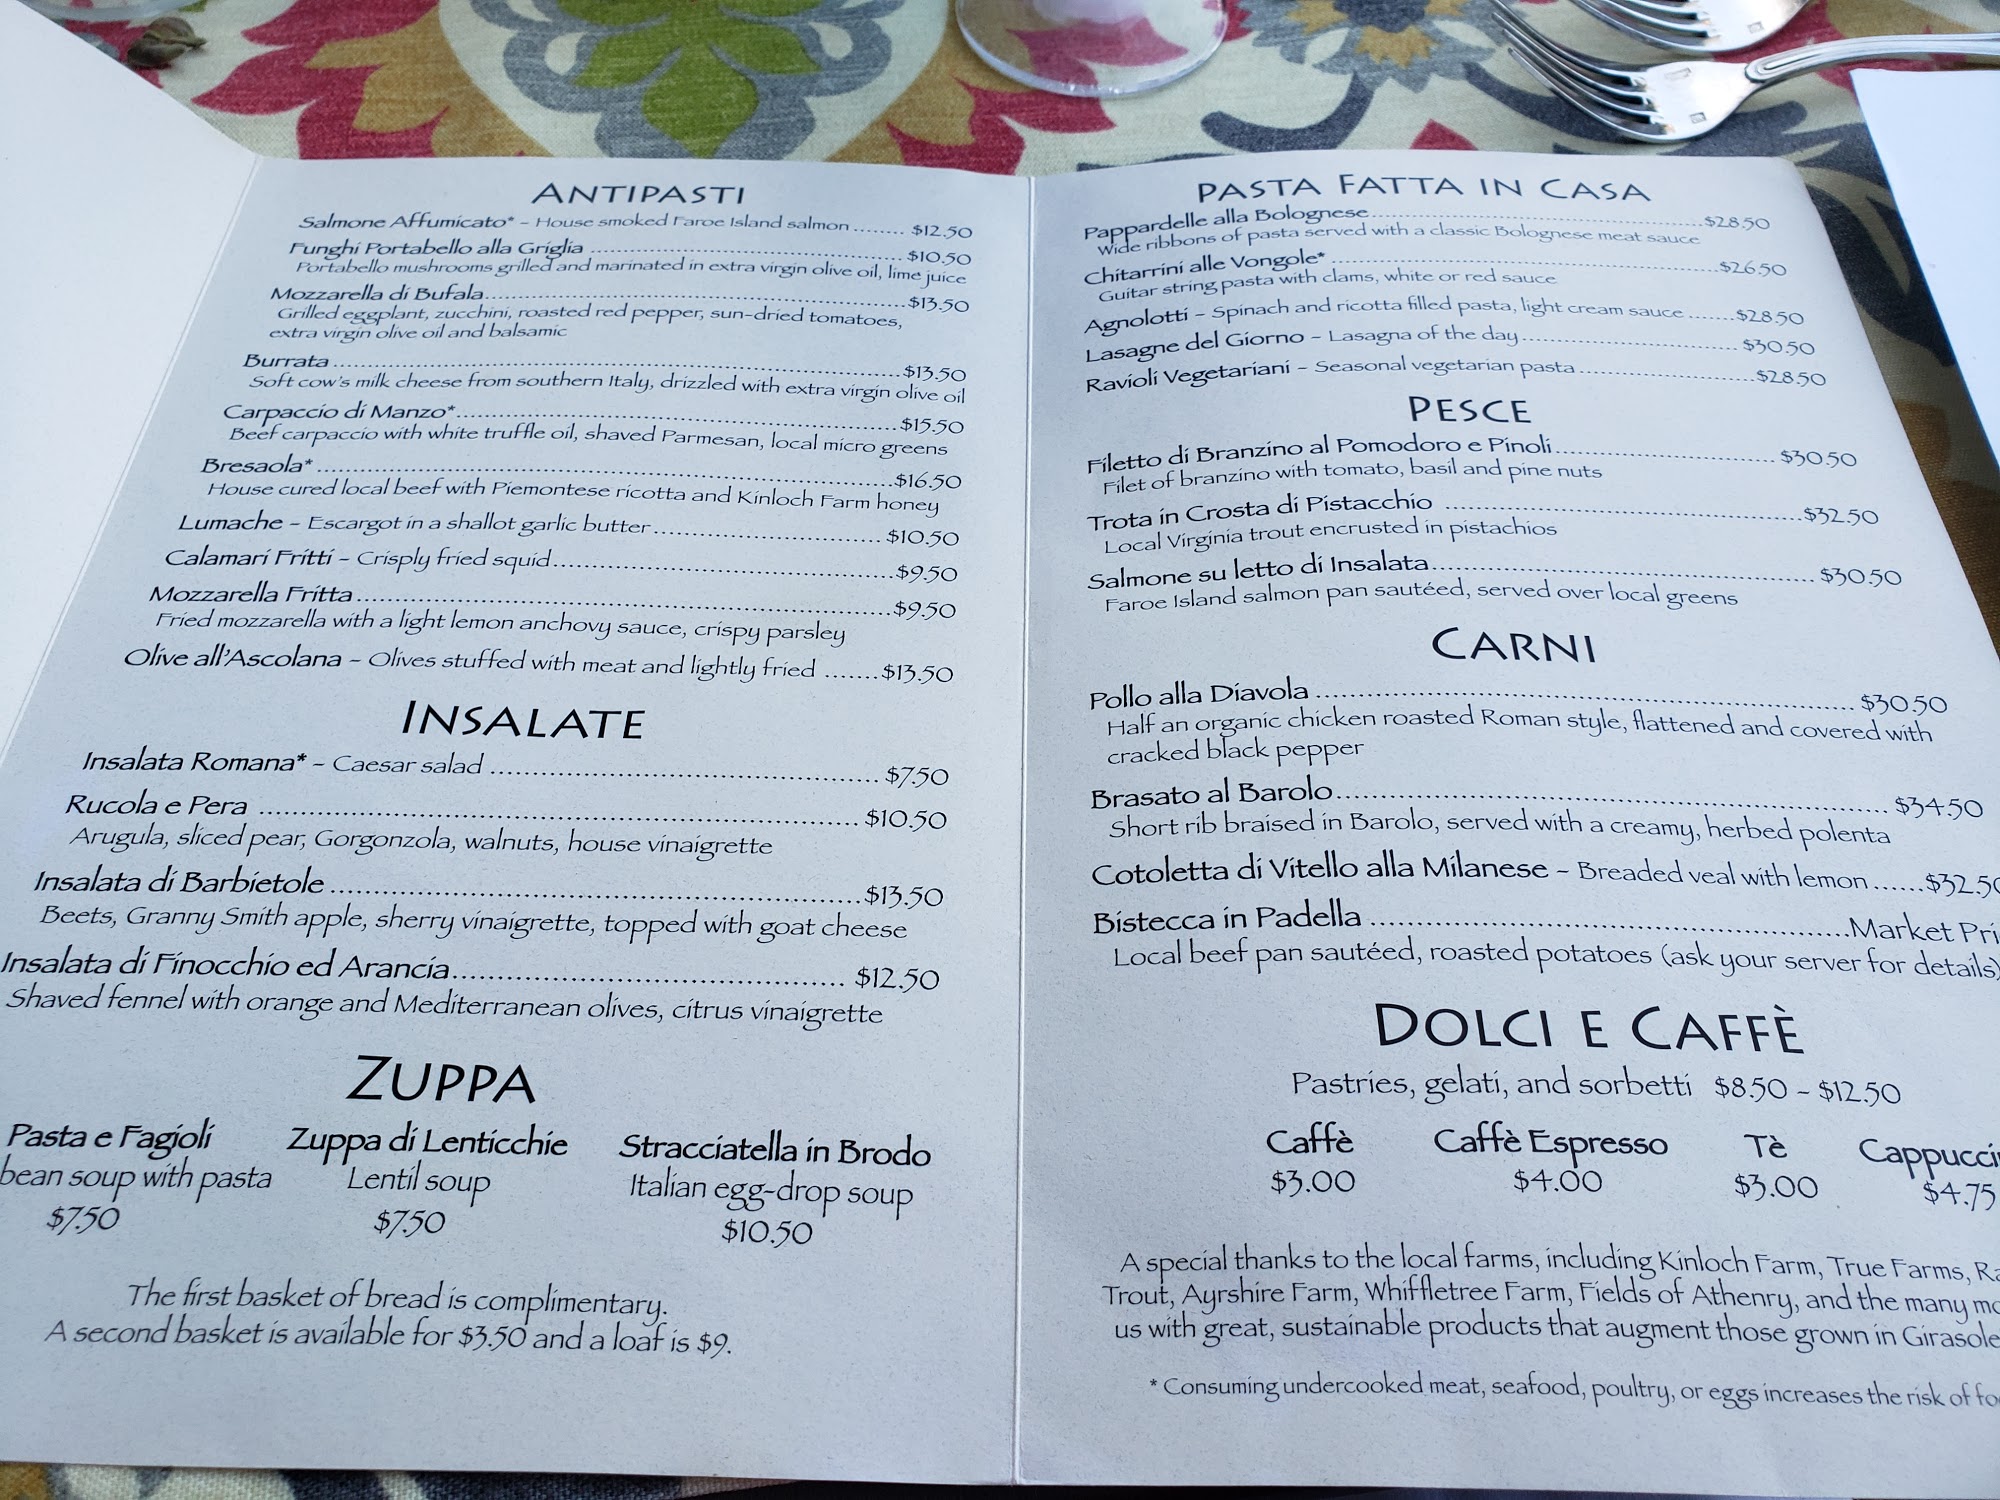 ANTIPASTI
Salmone Affumicato* – House smoked Faroe Island salmon ........ $12.50
Funghi Portabello alla Griglia ........ $10.50
Portabello mushrooms grilled and marinated in extra virgin olive oil, lime juice
Mozzarella di Bufala ........ $13.50
Grilled eggplant, zucchini, roasted red pepper, sun-dried tomatoes,
extra virgin olive oil and balsamic
Burrata ........ $13.50
Soft cow's milk cheese from southern Italy, drizzled with extra virgin olive oil
Carpaccio di Manzo* ........ $15.50
Beef carpaccio with white truffle oil, shaved Parmesan, local micro greens
Bresaola* ........ $16.50
House cured local beef with Piemontese ricotta and Kinloch Farm honey
Lumache – Escargot in a shallot garlic butter ........ $10.50
Calamari Fritti – Crisply fried squid ........ $9.50
Mozzarella Fritta ........ $9.50
Fried mozzarella with a light lemon anchovy sauce, crispy parsley
Olive all'Ascolana – Olives stuffed with meat and lightly fried ....... $13.50
INSALATE
Insalata Romana* – Caesar salad ........ $7.50
Rucola e Pera ........ $10.50
Arugula, sliced pear, Gorgonzola, walnuts, house vinaigrette
Insalata di Barbietole ........ $13.50
Beets, Granny Smith apple, sherry vinaigrette, topped with goat cheese
Insalata di Finocchio ed Arancia ........ $12.50
Shaved fennel with orange and Mediterranean olives, citrus vinaigrette
ZUPPA
Pasta e Fagioli Zuppa di Lenticchie Stracciatella in Brodo
bean soup with pasta Lentil soup Italian egg-drop soup
$7.50 $7.50 $10.50
The first basket of bread is complimentary.
A second basket is available for $3.50 and a loaf is $9.
PASTA FATTA IN CASA
Pappardelle alla Bolognese ........ $28.50
Wide ribbons of pasta served with a classic Bolognese meat sauce
Chitarrini alle Vongole* ........ $26.50
Guitar string pasta with clams, white or red sauce
Agnolotti – Spinach and ricotta filled pasta, light cream sauce ....... $28.50
Lasagne del Giorno – Lasagna of the day ........ $30.50
Ravioli Vegetariani – Seasonal vegetarian pasta ........ $28.50
PESCE
Filetto di Branzino al Pomodoro e Pinoli ........ $30.50
Filet of branzino with tomato, basil and pine nuts
Trota in Crosta di Pistacchio ........ $32.50
Local Virginia trout encrusted in pistachios
Salmone su letto di Insalata ........ $30.50
Faroe Island salmon pan sautéed, served over local greens
CARNI
Pollo alla Diavola ........ $30.50
Half an organic chicken roasted Roman style, flattened and covered with
cracked black pepper
Brasato al Barolo ........ $34.50
Short rib braised in Barolo, served with a creamy, herbed polenta
Cotoletta di Vitello alla Milanese – Breaded veal with lemon ...... $32.50
Bistecca in Padella ........ Market Pri
Local beef pan sautéed, roasted potatoes (ask your server for details)
DOLCI E CAFFÈ
Pastries, gelati, and sorbetti $8.50 – $12.50
Caffè Caffè Espresso Tè Cappucci
$3.00 $4.00 $3.00 $4.75
A special thanks to the local farms, including Kinloch Farm, True Farms, Ra
Trout, Ayrshire Farm, Whiffletree Farm, Fields of Athenry, and the many mo
us with great, sustainable products that augment those grown in Girasole
* Consuming undercooked meat, seafood, poultry, or eggs increases the risk of fo